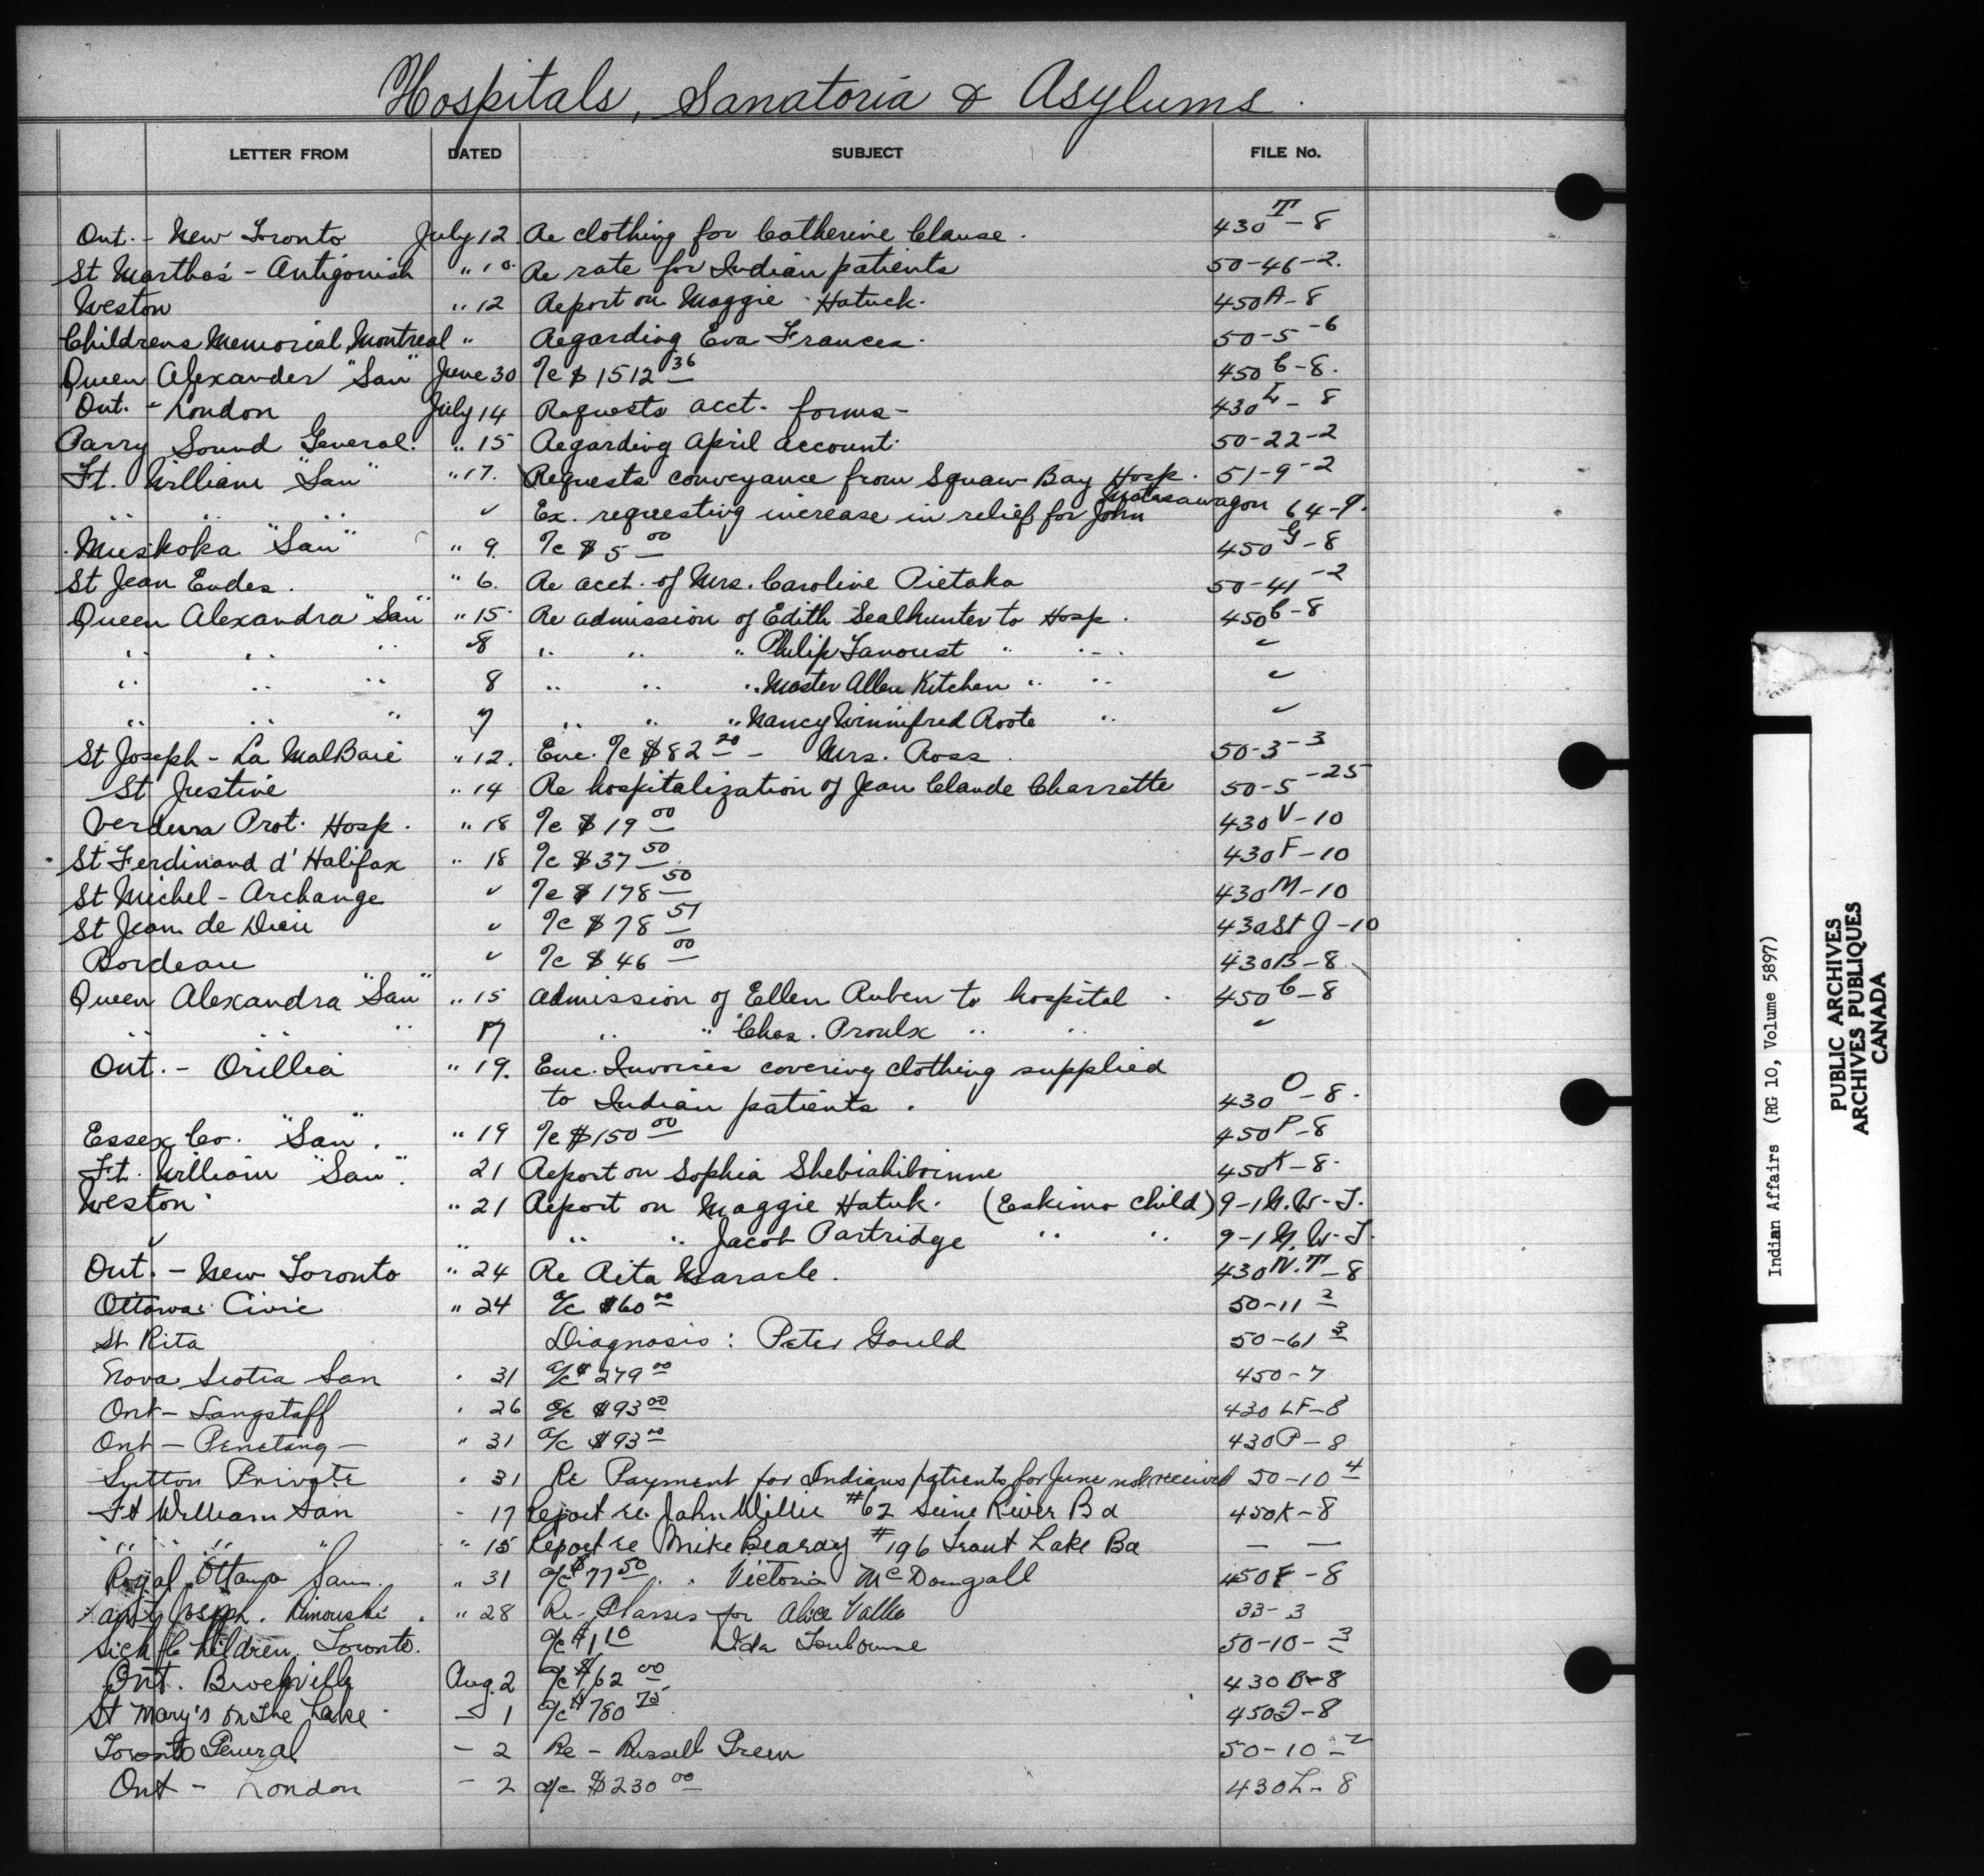 Hospitals, Sanatoria & Asylums.
LETTER FROM DATED SUBJECT FILE No.
Ont. - New Toronto July 12 Re clothing for Catherine Clause. 430 T-8
St Martha's - Antigonish " 10. Re rate for Indian patients 50-46-2.
Weston " 12 Report on Maggie Hatuck. 450A-8
Childrens Memorial, Montreal " Regarding Eva Frances. 50-5-6
Queen Alexander "San" June 30 a/c $1512 36 450 C-8.
Ont. - London July 14 Requests acct. forms - 430 L-8
Parry Sound General. " 15 Regarding April account. 50-22-2
Ft. William "San" " 17. Requests conveyance from Squaw Bay Hosp. 51-9-2
" " " ✓ Ex. requesting increase in relief for John 64-9.
Muskoka "San" " 9. a/c $5 00 450 G-8
St Jean Eudes. " 6. Re acct. of Mrs. Caroline Pietaka 50-41-2
Queen Alexandra "San" " 15. Re admission of Edith Sealhunter to Hosp. 450 C-8
" " " 8 " " " Philip Lanoust " " ✓
" " " 8 " " " Master Allen Kitchen " " ✓
" " " 7 " " " Nancy Winnifred Roote " ✓
St Joseph - La MalBaie " 12. Enc. a/c $82 20 - Mrs. Ross 50-3-3
St Justine " 14 Re hospitalization of Jean Claude Charrette 50-5-25
Verdun Prot. Hosp. " 18 a/c $19 00 430 V-10
St Ferdinand d'Halifax " 18 a/c $37 50 430 F-10
St Michel - Archange ✓ a/c $178 50 430 M-10
St Jean de Dieu ✓ a/c $78 51 430 St J-10
Bordeau ✓ a/c $46 00 430B-8
Queen Alexandra "San" " 15 Admission of Ellen Ruben to hospital. 450 C-8
" " " 17 " " Chas. Proulx " " ✓
Ont. - Orillia " 19. Enc. Invoices covering clothing supplied
to Indian patients. 430 O-8.
Essex Co. "San". " 19 a/c $150 00 450 P-8
Ft. William "San". 21 Report on Sophia 450K-8.
Weston " 21 Report on Maggie Hatuk. (Eskimo child) 9-1 N.W.T.
✓ " " " Jacob Partridge " " 9-1 N.W.T.
Ont. - New Toronto " 24 Re Rita Maracle. 430 N.T-8
Ottawa Civic " 24 a/c $60 00 50-11 2
St Rita Diagnosis: Peter Gould 50-61 3
Nova Scotia San . 31 a/c $279 00 450-7
Ont - Langstaff . 26 a/c $93 00 430 LF-8
Ont - Penetang - " 31 a/c $93 00 430P-8
Sutton Private . 31 Re Payment for Indians patients for June not received 50-10 4
Ft William San - 17 Report re. John Willie #62 Seine River Bd 450K-8
" " " " " 15 Report re Mike Bearay #196 Trout Lake Bd — —
Royal Ottawa San. " 31 a/c $77 50 . . Victoria McDougall 450F-8
Joseph. Rimouski. " 28 Re - for Alice Vallee 33-3
Sick Children, Toronto. a/c $1 10 50-10-3
Ont. Brockville Aug. 2 a/c $62 00 430 B-8
St Mary's on the Lake - 1 a/c $780 75 450 -8
Toronto General - 2 Re - Russell Green 50-10-2
Ont - London - 2 a/c $230 00 430L-8
Indian Affairs (RG 10, Volume 5897)
PUBLIC ARCHIVES
ARCHIVES PUBLIQUES
CANADA